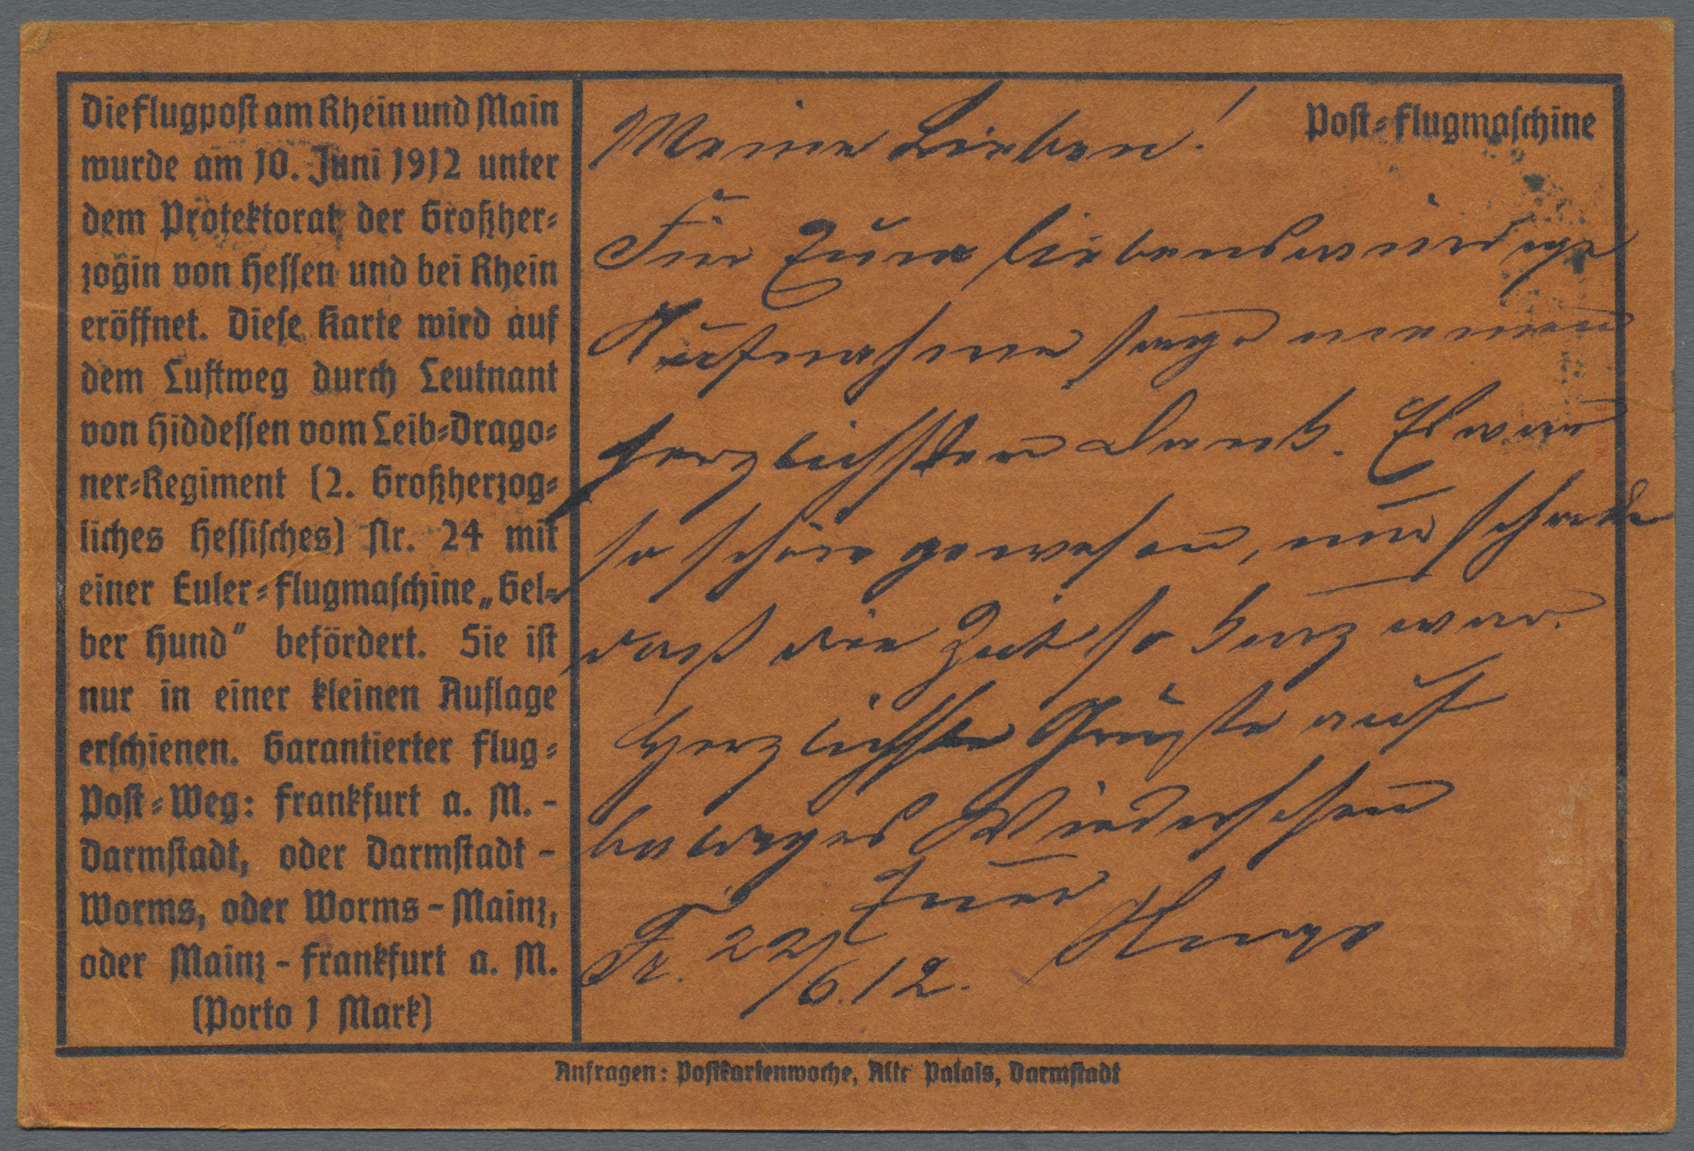 Die Flugpost am Rhein und Main
wurde am 10. Juni 1912 unter
dem Protektorat der Großher-
zogin von Hessen und bei Rhein
eröffnet. Diese Karte wird auf
dem Luftweg durch Leutnant
von Hiddessen vom Leib-Drago-
ner-Regiment (2. Großherzog-
liches Hessisches) Nr. 24 mit
einer Euler-Flugmaschine „Gel-
ber Hund" befördert. Sie ist
nur in einer kleinen Auflage
erschienen. Garantierter Flug-
Post-Weg: Frankfurt a. M. -
Darmstadt, oder Darmstadt -
Worms, oder Worms - Mainz,
oder Mainz - Frankfurt a. M.
(Porto 1 Mark)
Post-Flugmaschine
Meine Lieben!
Für Eure liebenswürdige
Aufnahme sage meinen
herzlichsten Dank. Es war
so schön gewesen, nur schade
daß die Zeit so kurz war.
Herzlichste Grüße auf
baldiges Wiedersehen
Euer
Fr. 22/6.12. Hugo
Anfragen: Postkartenwoche, Alte Palais, Darmstadt